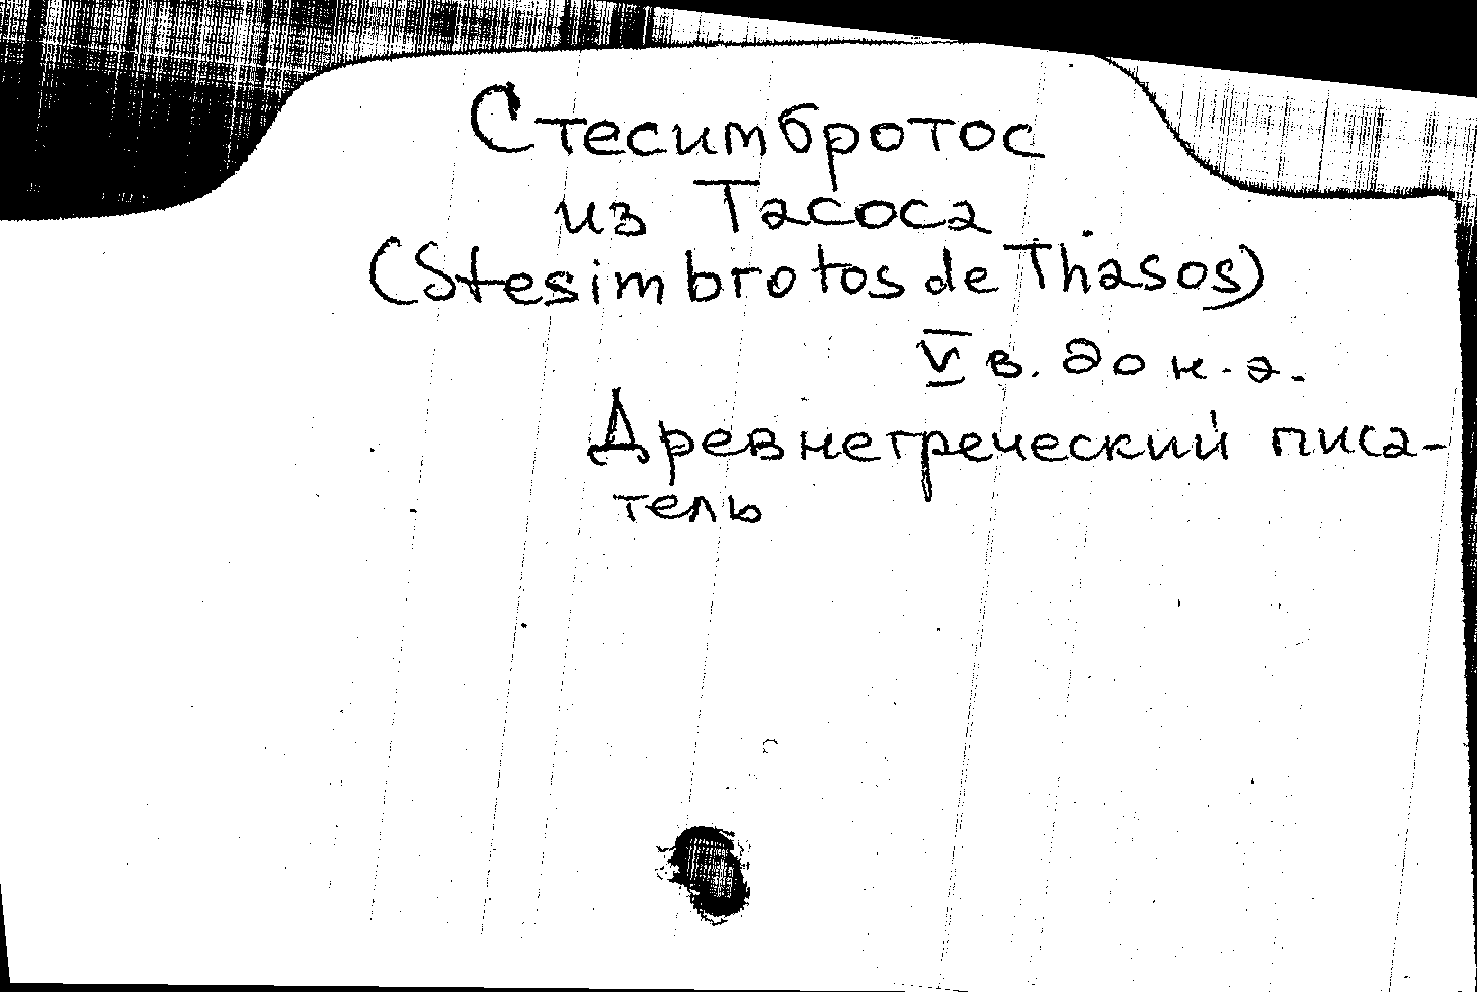 Стесимбротос
из Тасоса
(Stesimbrotos de Thasos)
V в. до н.э.
Древнегреческий писа-
тель